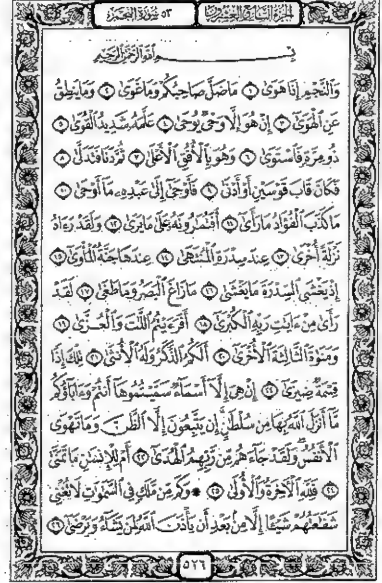 الجزء السابع والعشرون ٥٣ سورة النجم
بسم الله الرحمن الرحيم
وَٱلنَّجْمِ إِذَا هَوَىٰ ١ مَا ضَلَّ صَاحِبُكُمْ وَمَا غَوَىٰ ٢ وَمَا يَنطِقُ
عَنِ ٱلْهَوَىٰٓ ٣ إِنْ هُوَ إِلَّا وَحْىٌ يُوحَىٰ ٤ عَلَّمَهُۥ شَدِيدُ ٱلْقُوَىٰ ٥
ذُو مِرَّةٍ فَٱسْتَوَىٰ ٦ وَهُوَ بِٱلْأُفُقِ ٱلْأَعْلَىٰ ٧ ثُمَّ دَنَا فَتَدَلَّىٰ ٨
فَكَانَ قَابَ قَوْسَيْنِ أَوْ أَدْنَىٰ ٩ فَأَوْحَىٰٓ إِلَىٰ عَبْدِهِۦ مَآ أَوْحَىٰ ١٠
مَا كَذَبَ ٱلْفُؤَادُ مَا رَأَىٰٓ ١١ أَفَتُمَٰرُونَهُۥ عَلَىٰ مَا يَرَىٰ ١٢ وَلَقَدْ رَءَاهُ
نَزْلَةً أُخْرَىٰ ١٣ عِندَ سِدْرَةِ ٱلْمُنتَهَىٰ ١٤ عِندَهَا جَنَّةُ ٱلْمَأْوَىٰٓ ١٥
إِذْ يَغْشَى ٱلسِّدْرَةَ مَا يَغْشَىٰ ١٦ مَا زَاغَ ٱلْبَصَرُ وَمَا طَغَىٰ ١٧ لَقَدْ
رَأَىٰ مِنْ ءَايَٰتِ رَبِّهِ ٱلْكُبْرَىٰٓ ١٨ أَفَرَءَيْتُمُ ٱللَّٰتَ وَٱلْعُزَّىٰ ١٩
وَمَنَوٰةَ ٱلثَّالِثَةَ ٱلْأُخْرَىٰٓ ٢٠ أَلَكُمُ ٱلذَّكَرُ وَلَهُ ٱلْأُنثَىٰ ٢١ تِلْكَ إِذًا
قِسْمَةٌ ضِيزَىٰٓ ٢٢ إِنْ هِىَ إِلَّآ أَسْمَآءٌ سَمَّيْتُمُوهَآ أَنتُمْ وَءَابَآؤُكُم
مَّآ أَنزَلَ ٱللَّهُ بِهَا مِن سُلْطَٰنٍ إِن يَتَّبِعُونَ إِلَّا ٱلظَّنَّ وَمَا تَهْوَى
ٱلْأَنفُسُ وَلَقَدْ جَآءَهُم مِّن رَّبِّهِمُ ٱلْهُدَىٰٓ ٢٣ أَمْ لِلْإِنسَٰنِ مَا تَمَنَّىٰ
٢٤ فَلِلَّهِ ٱلْءَاخِرَةُ وَٱلْأُولَىٰ ٢٥ ۞ وَكَم مِّن مَّلَكٍ فِى ٱلسَّمَٰوَٰتِ لَا تُغْنِى
شَفَٰعَتُهُمْ شَيْـًٔا إِلَّا مِنۢ بَعْدِ أَن يَأْذَنَ ٱللَّهُ لِمَن يَشَآءُ وَيَرْضَىٰٓ ٢٦
٥٢٦